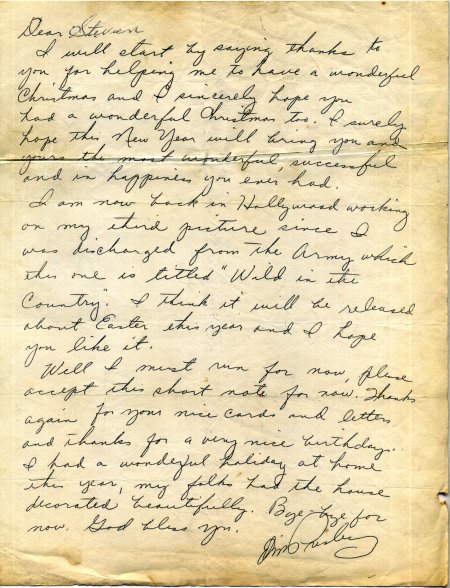 Dear Steven
I will start by saying thanks to
you for helping me to have a wonderful
Christmas and I sincerely hope you
had a wonderful Christmas too. I surely
hope this New Year will bring you and
yours the most wonderful, successful
and in happiness you ever had.
I am now back in Hollywood working
on my third picture since I
was discharged from the Army which
this one is titled "Wild in the
Country". I think it will be released
about Easter this year and I hope
you like it.
Well I must run for now, please
accept this short note for now. Thanks
again for your nice cards and letters
and thanks for a very nice birthday.
I had a wonderful holiday at home
this year, my folks had the house
decorated beautifully. Bye-bye for
now. God bless you.
Presley